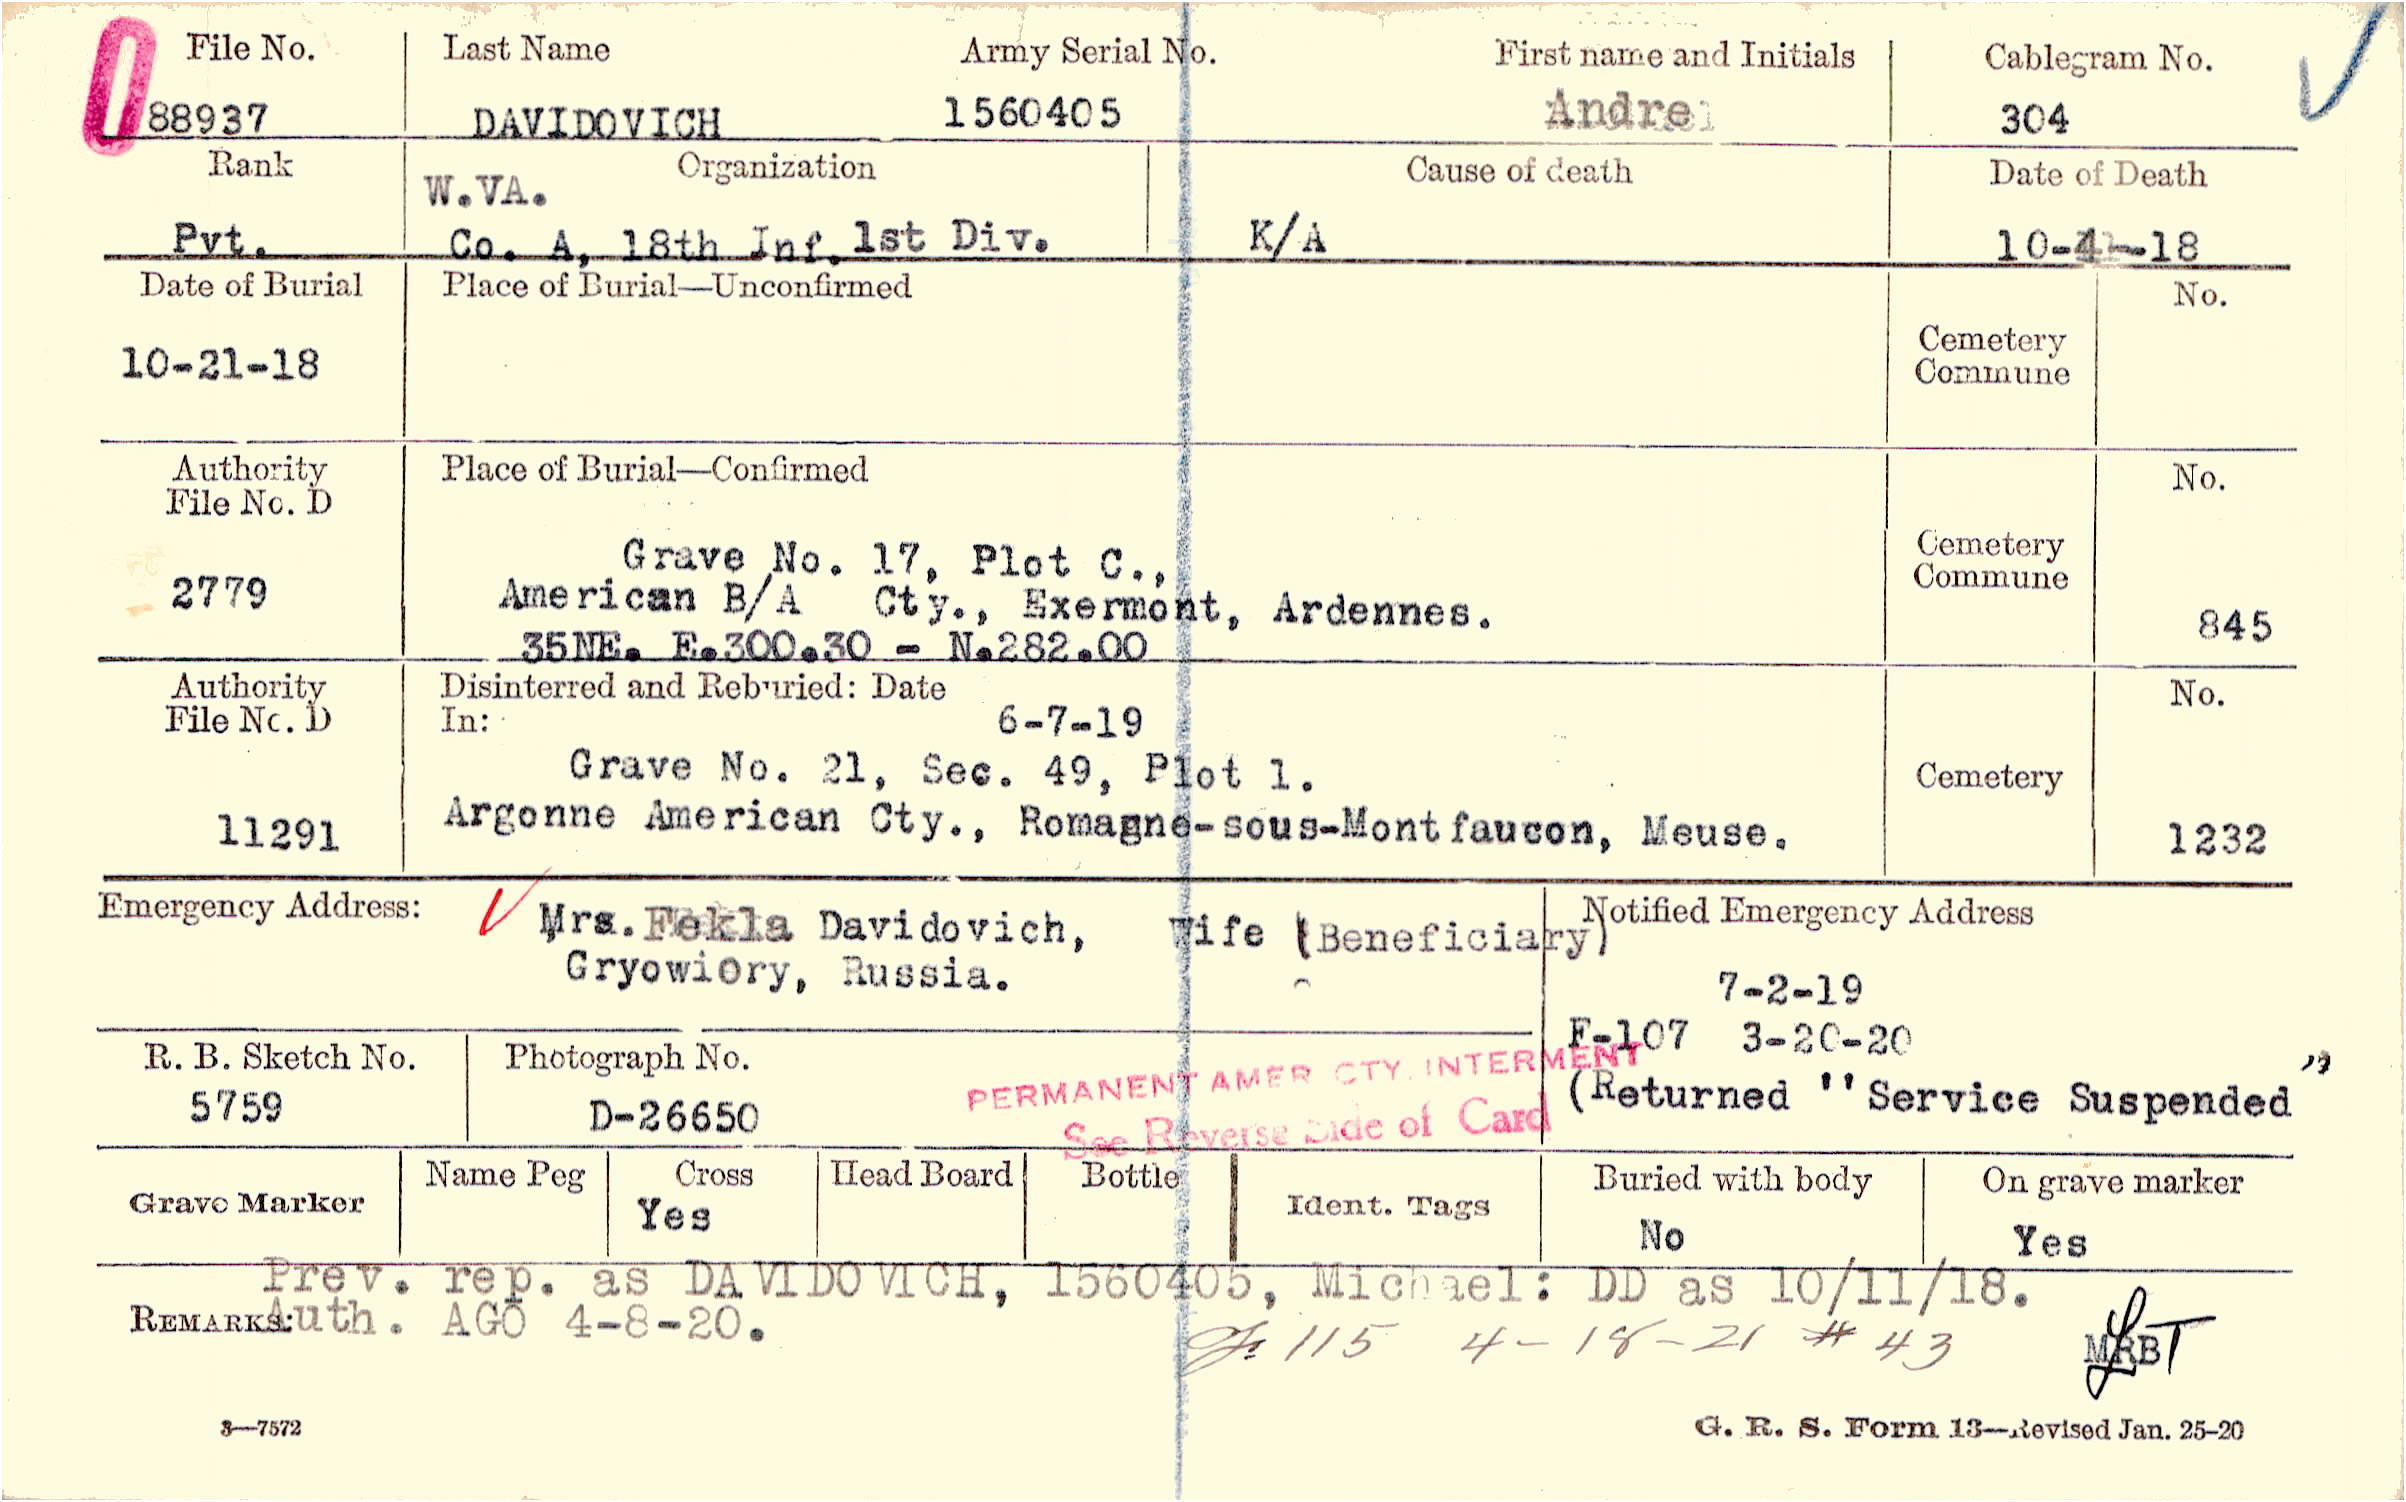 File No. Last Name Army Serial No. First name and Initials Cablegram No.
88937 DAVIDOVICH 1560405 Andre 304
Rank Organization Cause of death Date of Death
W.VA.
Pvt. Co. A, 18th Inf. 1st Div. K/A 10-4-18
Date of Burial Place of Burial—Unconfirmed No.
10-21-18 Cemetery
Commune
Authority Place of Burial—Confirmed No.
File No. D
Grave No. 17, Plot C., Cemetery
2779 American B/A Cty., Exermont, Ardennes. Commune
35NE. E.300.30 - N.282.00 845
Authority Disinterred and Reburied: Date No.
File No. D In: 6-7-19
Grave No. 21, Sec. 49, Plot 1. Cemetery
11291 Argonne American Cty., Romagne-sous-Montfaucon, Meuse. 1232
Emergency Address: Mrs. Fekla Davidovich, Wife (Beneficiary) Notified Emergency Address
Gryowiory, Russia. 7-2-19
F-107 3-20-20
R. B. Sketch No. Photograph No. PERMANENT AMER CTY. INTERMENT
5759 D-26650 See Reverse Side of Card (Returned "Service Suspended"
Grave Marker Name Peg Cross Head Board Bottle Ident. Tags Buried with body On grave marker
Yes No Yes
Prev. rep. as DAVIDOVICH, 1560405, Michael: DD as 10/11/18.
REMARKS: Auth. AGO 4-8-20.
115 4-18-21 # 43 MRBT
3—7572 G. R. S. Form 13—Revised Jan. 25-20